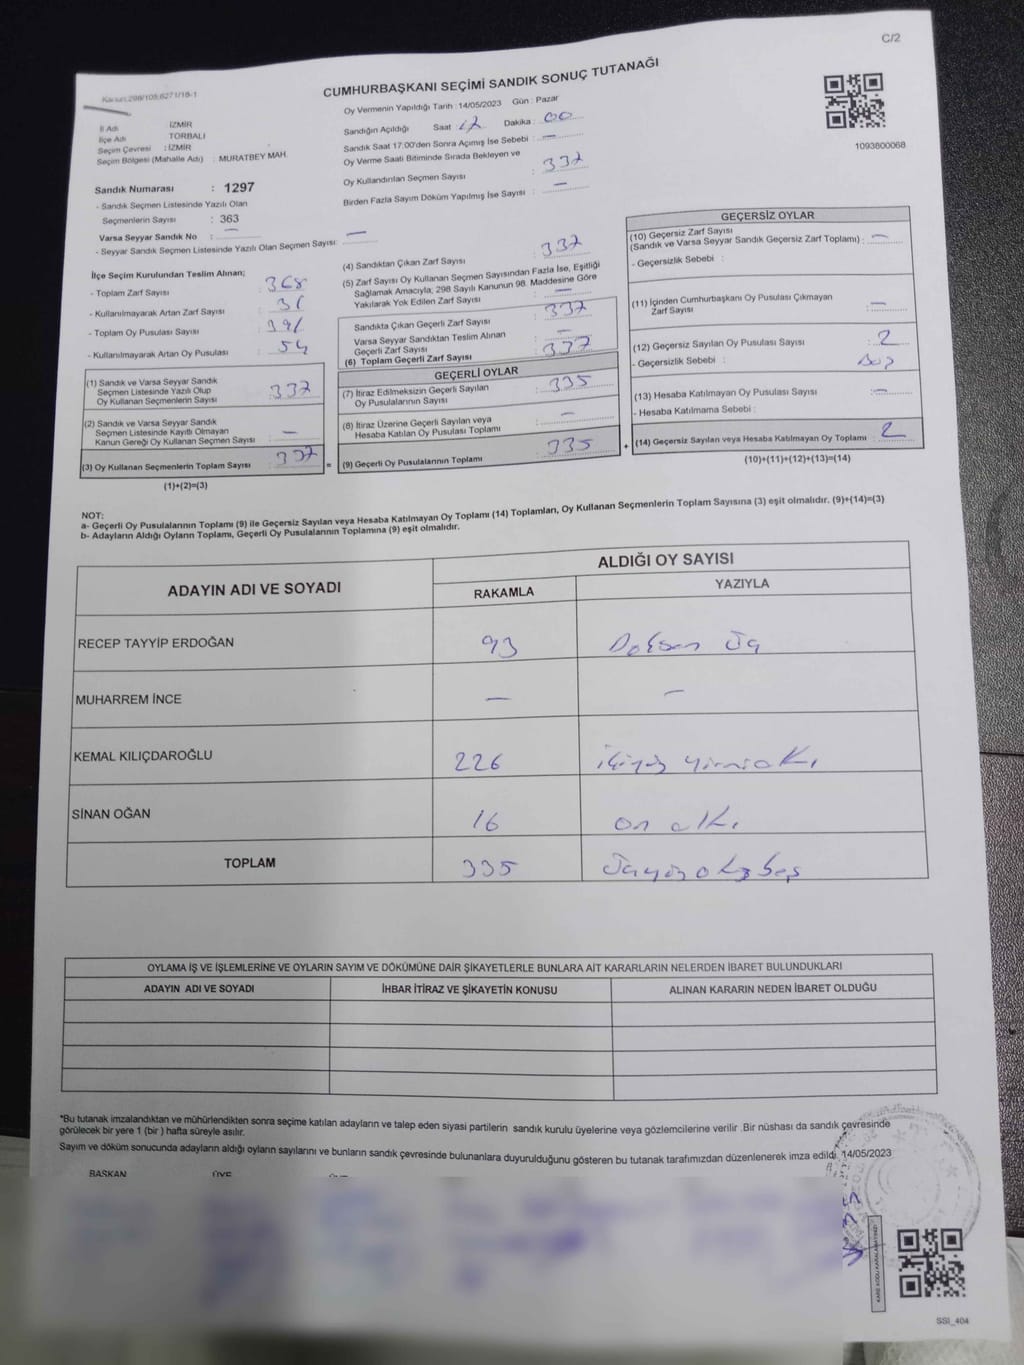 C/2
Kanun:298/105;6271/18-1
CUMHURBAŞKANI SEÇİMİ SANDIK SONUÇ TUTANAĞI
İl Adı : İZMİR
İlçe Adı : TORBALI
Seçim Çevresi : İZMİR
Seçim Bölgesi (Mahalle Adı) : MURATBEY MAH.
Sandık Numarası : 1297
- Sandık Seçmen Listesinde Yazılı Olan
Seçmenlerin Sayısı : 363
Varsa Seyyar Sandık No : —
- Seyyar Sandık Seçmen Listesinde Yazılı Olan Seçmen Sayısı: —
Oy Vermenin Yapıldığı Tarih :14/05/2023 Gün : Pazar
Sandığın Açıldığı Saat 17 Dakika : 00
Sandık Saat 17:00'den Sonra Açımış İse Sebebi : —
Oy Verme Saati Bitiminde Sırada Bekleyen ve
Oy Kullandırılan Seçmen Sayısı : 337
Birden Fazla Sayım Döküm Yapılmış İse Sayısı : —
1093800068
İlçe Seçim Kurulundan Teslim Alınan;
- Toplam Zarf Sayısı : 368
- Kullanılmayarak Artan Zarf Sayısı : 31
- Toplam Oy Pusulası Sayısı : 391
- Kullanılmayarak Artan Oy Pusulası : 54
(1) Sandık ve Varsa Seyyar Sandık
Seçmen Listesinde Yazılı Olup
Oy Kullanan Seçmenlerin Sayısı : 337
(2) Sandık ve Varsa Seyyar Sandık
Seçmen Listesinde Kayıtlı Olmayan
Kanun Gereği Oy Kullanan Seçmen Sayısı : —
(3) Oy Kullanan Seçmenlerin Toplam Sayısı : 337
(1)+(2)=(3)
(4) Sandıktan Çıkan Zarf Sayısı : 337
(5) Zarf Sayısı Oy Kullanan Seçmen Sayısından Fazla İse, Eşitliği
Sağlamak Amacıyla; 298 Sayılı Kanunun 98. Maddesine Göre
Yakılarak Yok Edilen Zarf Sayısı : —
Sandıkta Çıkan Geçerli Zarf Sayısı : 337
Varsa Seyyar Sandıktan Teslim Alınan
Geçerli Zarf Sayısı : —
(6) Toplam Geçerli Zarf Sayısı : 337
GEÇERLİ OYLAR
(7) İtiraz Edilmeksizin Geçerli Sayılan
Oy Pusulalarının Sayısı : 335
(8) İtiraz Üzerine Geçerli Sayılan veya
Hesaba Katılan Oy Pusulası Toplamı : —
= (9) Geçerli Oy Pusulalarının Toplamı : 335
GEÇERSİZ OYLAR
(10) Geçersiz Zarf Sayısı
(Sandık ve Varsa Seyyar Sandık Geçersiz Zarf Toplamı) : —
- Geçersizlik Sebebi :
(11) İçinden Cumhurbaşkanı Oy Pusulası Çıkmayan
Zarf Sayısı : —
(12) Geçersiz Sayılan Oy Pusulası Sayısı : 2
- Geçersizlik Sebebi :
(13) Hesaba Katılmayan Oy Pusulası Sayısı : —
- Hesaba Katılmama Sebebi :
+ (14) Geçersiz Sayılan veya Hesaba Katılmayan Oy Toplamı : 2
(10)+(11)+(12)+(13)=(14)
NOT:
a- Geçerli Oy Pusulalarının Toplamı (9) ile Geçersiz Sayılan veya Hesaba Katılmayan Oy Toplamı (14) Toplamları, Oy Kullanan Seçmenlerin Toplam Sayısına (3) eşit olmalıdır. (9)+(14)=(3)
b- Adayların Aldığı Oyların Toplamı, Geçerli Oy Pusulalarının Toplamına (9) eşit olmalıdır.
ADAYIN ADI VE SOYADI
ALDIĞI OY SAYISI
RAKAMLA YAZIYLA
RECEP TAYYİP ERDOĞAN 93 Doksan Üç
MUHARREM İNCE — —
KEMAL KILIÇDAROĞLU 226 ikiyüz yirmi altı
SİNAN OĞAN 16 on altı
TOPLAM 335 Üçyüz otuz beş
OYLAMA İŞ VE İŞLEMLERİNE VE OYLARIN SAYIM VE DÖKÜMÜNE DAİR ŞİKAYETLERLE BUNLARA AİT KARARLARIN NELERDEN İBARET BULUNDUKLARI
ADAYIN ADI VE SOYADI İHBAR İTİRAZ VE ŞİKAYETİN KONUSU ALINAN KARARIN NEDEN İBARET OLDUĞU
*Bu tutanak imzalandıktan ve mühürlendikten sonra seçime katılan adayların ve talep eden siyasi partilerin sandık kurulu üyelerine veya gözlemcilerine verilir .Bir nüshası da sandık çevresinde
görülecek bir yere 1 (bir ) hafta süreyle asılır.
Sayım ve döküm sonucunda adayların aldığı oyların sayılarını ve bunların sandık çevresinde bulunanlara duyurulduğunu gösteren bu tutanak tarafımızdan düzenlenerek imza edildi. 14/05/2023
BAŞKAN ÜYE
KARE KODU KARALAMAYINIZ!
SSI_404